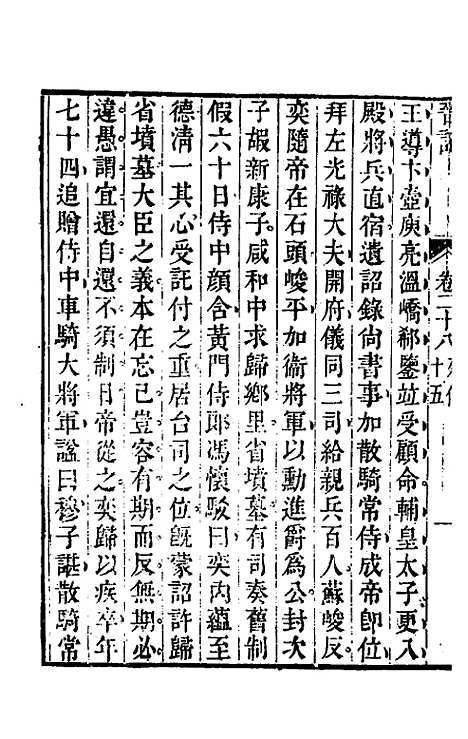 卷二十八
十五
王導卞壺庾亮溫嶠郗鑒竝受顧命輔皇太子更入
殿將兵直宿遺詔錄尚書事加散騎常侍成帝卽位
拜左光祿大夫開府儀同三司給親兵百人蘇峻反
奕隨帝在石頭峻平加衞將軍以勳進爵爲公封次
子嘏新康子咸和中求歸鄉里省墳墓有司奏舊制
假六十日侍中顏含黃門侍郎馮懷駁曰奕內蘊至
德清一其心受託付之重居台司之位旣蒙詔許歸
省墳墓大臣之義本在忘己豈容有期而反無期必
違愚謂宜還自還不須制日帝從之奕歸以疾卒年
七十四追贈侍中車騎大將軍諡曰穆子諶散騎常